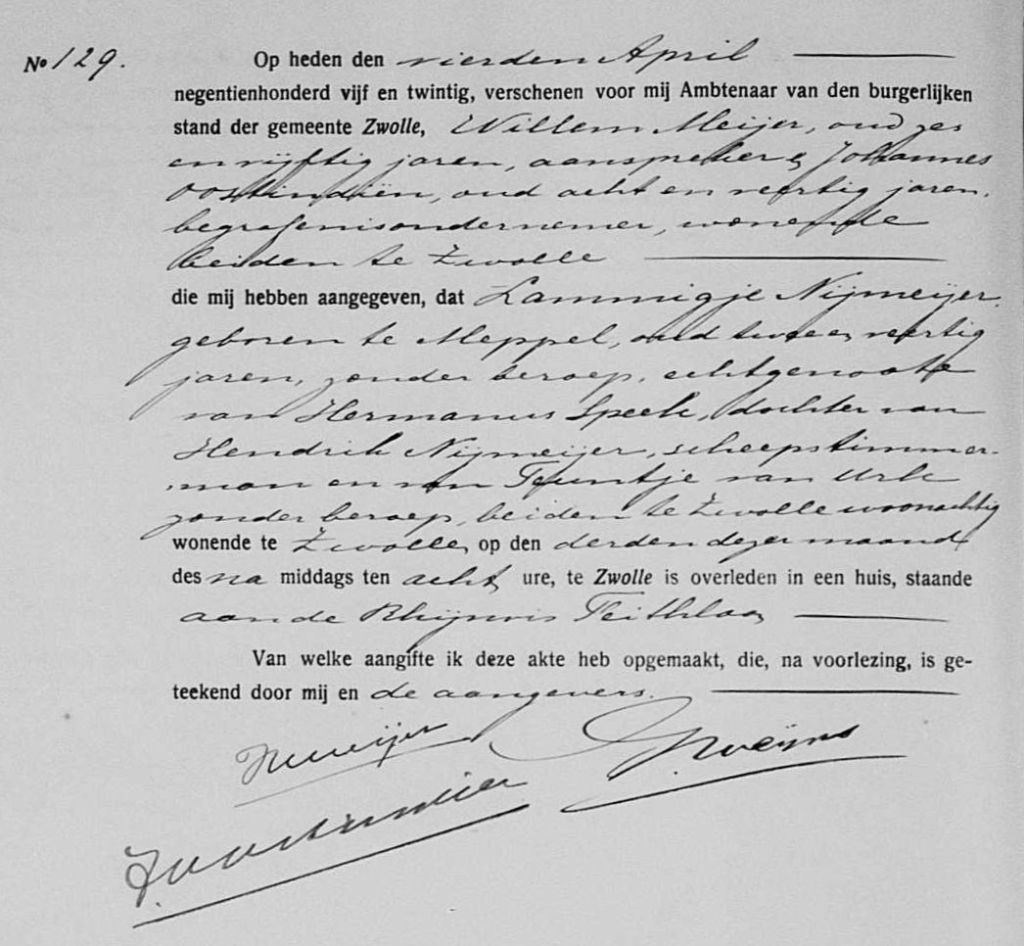 No 129.
Op heden den vierden April
negentienhonderd vijf en twintig, verschenen voor mij Ambtenaar van den burgerlijken
stand der gemeente Zwolle, Willem Meijer, oud zes
en vijftig jaren, aanspreker & Johannes
Oostindiën, oud acht en veertig jaren,
begrafenisondernemer, wonende
beiden te Zwolle
die mij hebben aangegeven, dat Lammigje Nijmeijer,
geboren te Meppel, oud twee en veertig
jaren, zonder beroep, echtgenoote
van Hermanus Speek, dochter van
Hendrik Nijmeijer, scheepstimmer-
man en van Teuntje van Urk
zonder beroep, beiden te Zwolle woonachtig
wonende te Zwolle, op den derden dezer maand
des na middags ten acht ure, te Zwolle is overleden in een huis, staande
aan de Rhijnvis Feithlaan
Van welke aangifte ik deze akte heb opgemaakt, die, na voorlezing, is ge-
teekend door mij en de aangevers.
WMeijer
J. Oostindiën